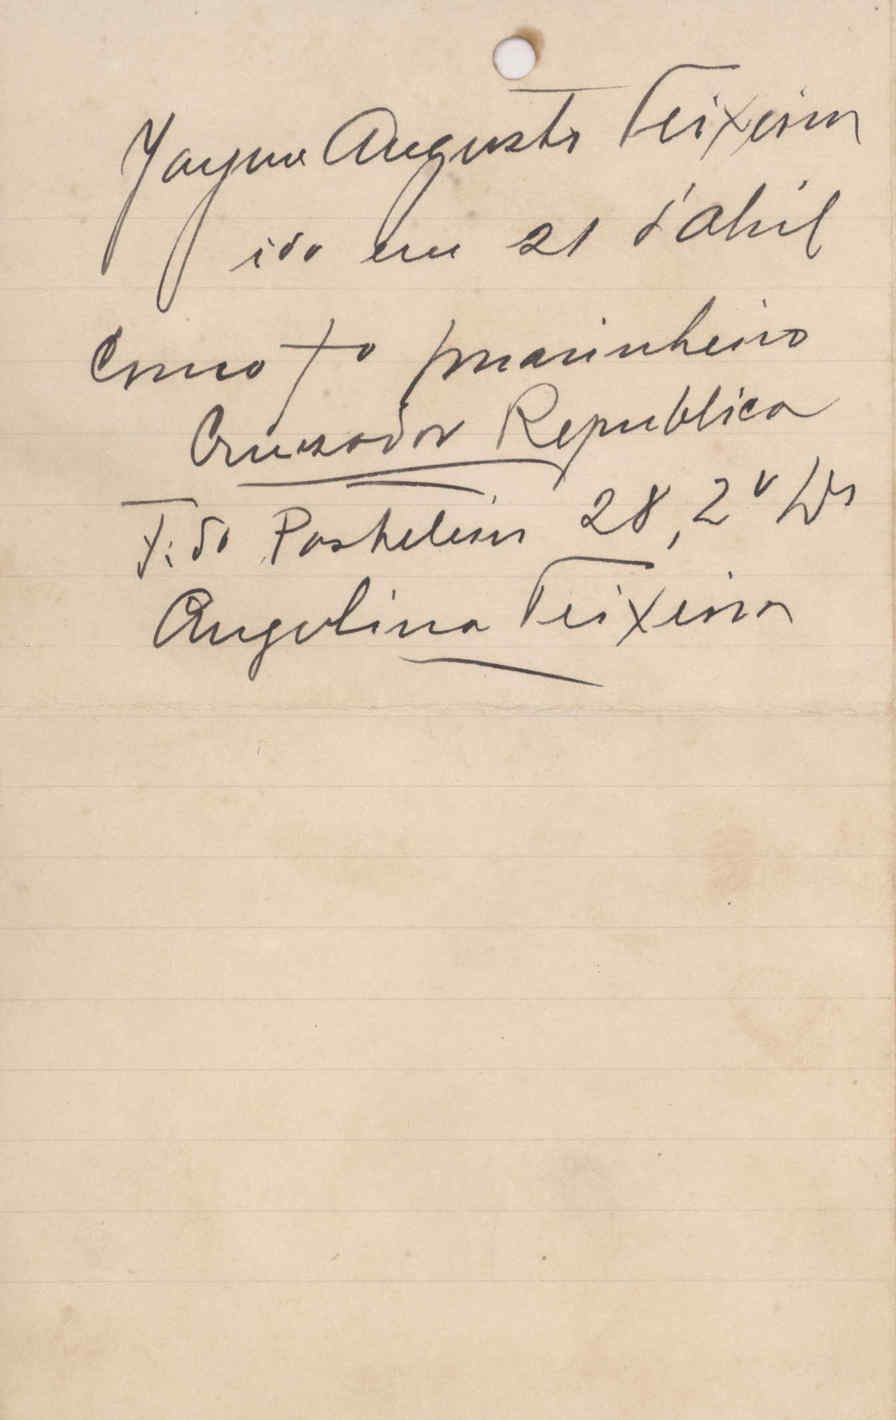 Jayme Augusto Teixeira
ido em 21 d'Abril
Como 1º marinheiro
Cruzador Republica
T. do Pasteleiro 28, 2º
Angelina Teixeira